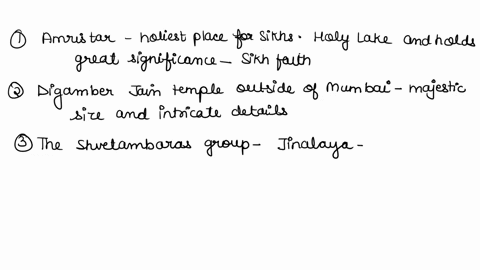 ① Amristar - holiest place for Sikhs. Holy Lake and holds
great significance - Sikh faith
② Digamber Jain temple outside of Mumbai - majestic
size and intricate details
③ The Shvetambaras group - Jinalaya -